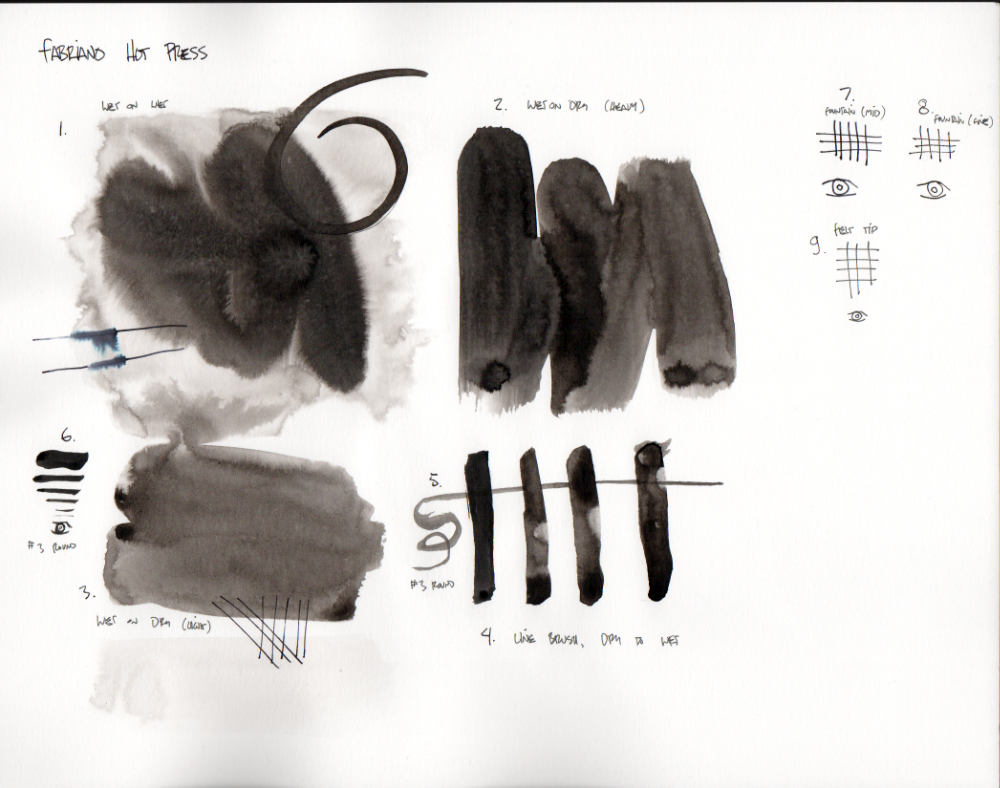 FABRIANO HOT PRESS
WET ON WET
1.
2. WET ON DRY (HEAVY)
7.
FOUNTAIN (MID)
8.
FOUNTAIN (FINE)
9. FELT TIP
6.
#3 ROUND
5.
#3 ROUND
3.
WET ON DRY (LIGHT)
4. LINE BRUSH, DRY TO WET